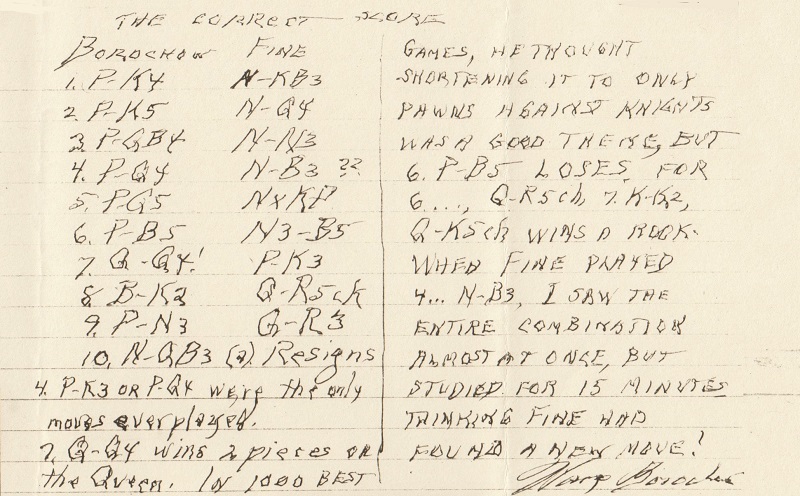 THE CORRECT SCORE
BOROCHOW FINE
1. P-K4 N-KB3
2. P-K5 N-Q4
3. P-QB4 N-N3
4. P-Q4 N-B3 ??
5. P-Q5 NxKP
6. P-B5 N3-B5
7. Q-Q4! P-K3
8. B-K2 Q-R5ck
9. P-N3 Q-R3
10. N-QB3 (a). Resigns
4. P-K3 OR P-Q4 were the only
moves ever played.
7. Q-Q4 wins 2 pieces or
the Queen. IN 1000 BEST
GAMES, HE THOUGHT
SHORTENING IT TO ONLY
PAWNS AGAINST KNIGHTS
WAS A GOOD THEME, BUT
6. P-B5 LOSES, FOR
6...., Q-R5ch, 7. K-K2,
Q-K5ch WINS A ROOK.
WHEN FINE PLAYED
4... N-B3, I SAW THE
ENTIRE COMBINATION
ALMOST AT ONCE, BUT
STUDIED FOR 15 MINUTES
THINKING FINE HAD
FOUND A NEW MOVE!
Borochow